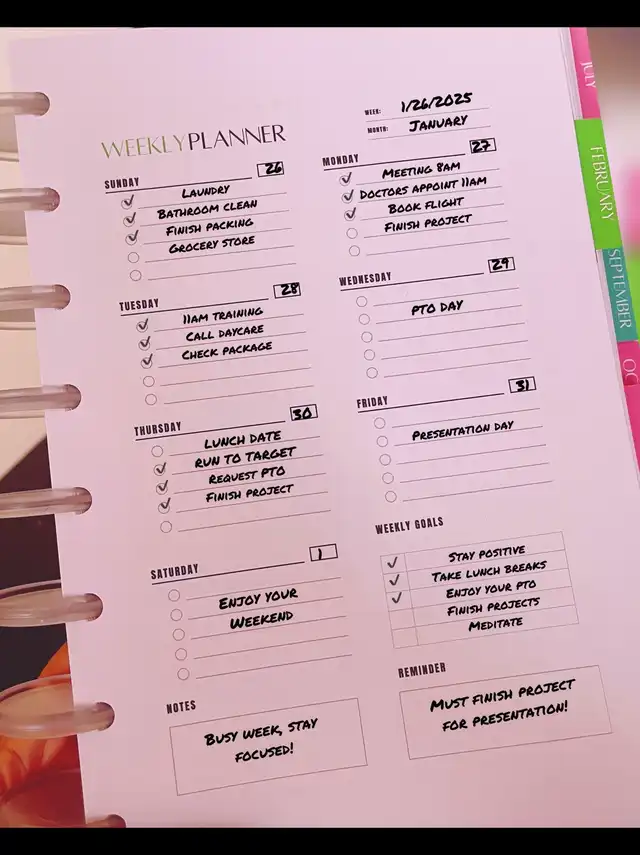 WEEK: 1/26/2025
MONTH: JANUARY
WEEKLYPLANNER
SUNDAY 26
LAUNDRY
BATHROOM CLEAN
FINISH PACKING
GROCERY STORE
MONDAY 27
MEETING 8AM
DOCTORS APPOINT 11AM
BOOK FLIGHT
FINISH PROJECT
TUESDAY 28
11AM TRAINING
CALL DAYCARE
CHECK PACKAGE
WEDNESDAY 29
PTO DAY
THURSDAY 30
LUNCH DATE
RUN TO TARGET
REQUEST PTO
FINISH PROJECT
FRIDAY 31
PRESENTATION DAY
SATURDAY 1
ENJOY YOUR
WEEKEND
WEEKLY GOALS
STAY POSITIVE
TAKE LUNCH BREAKS
ENJOY YOUR PTO
FINISH PROJECTS
MEDITATE
NOTES
BUSY WEEK, STAY
FOCUSED!
REMINDER
MUST FINISH PROJECT
FOR PRESENTATION!
JULY
FEBRUARY
SEPTEMBER
OC